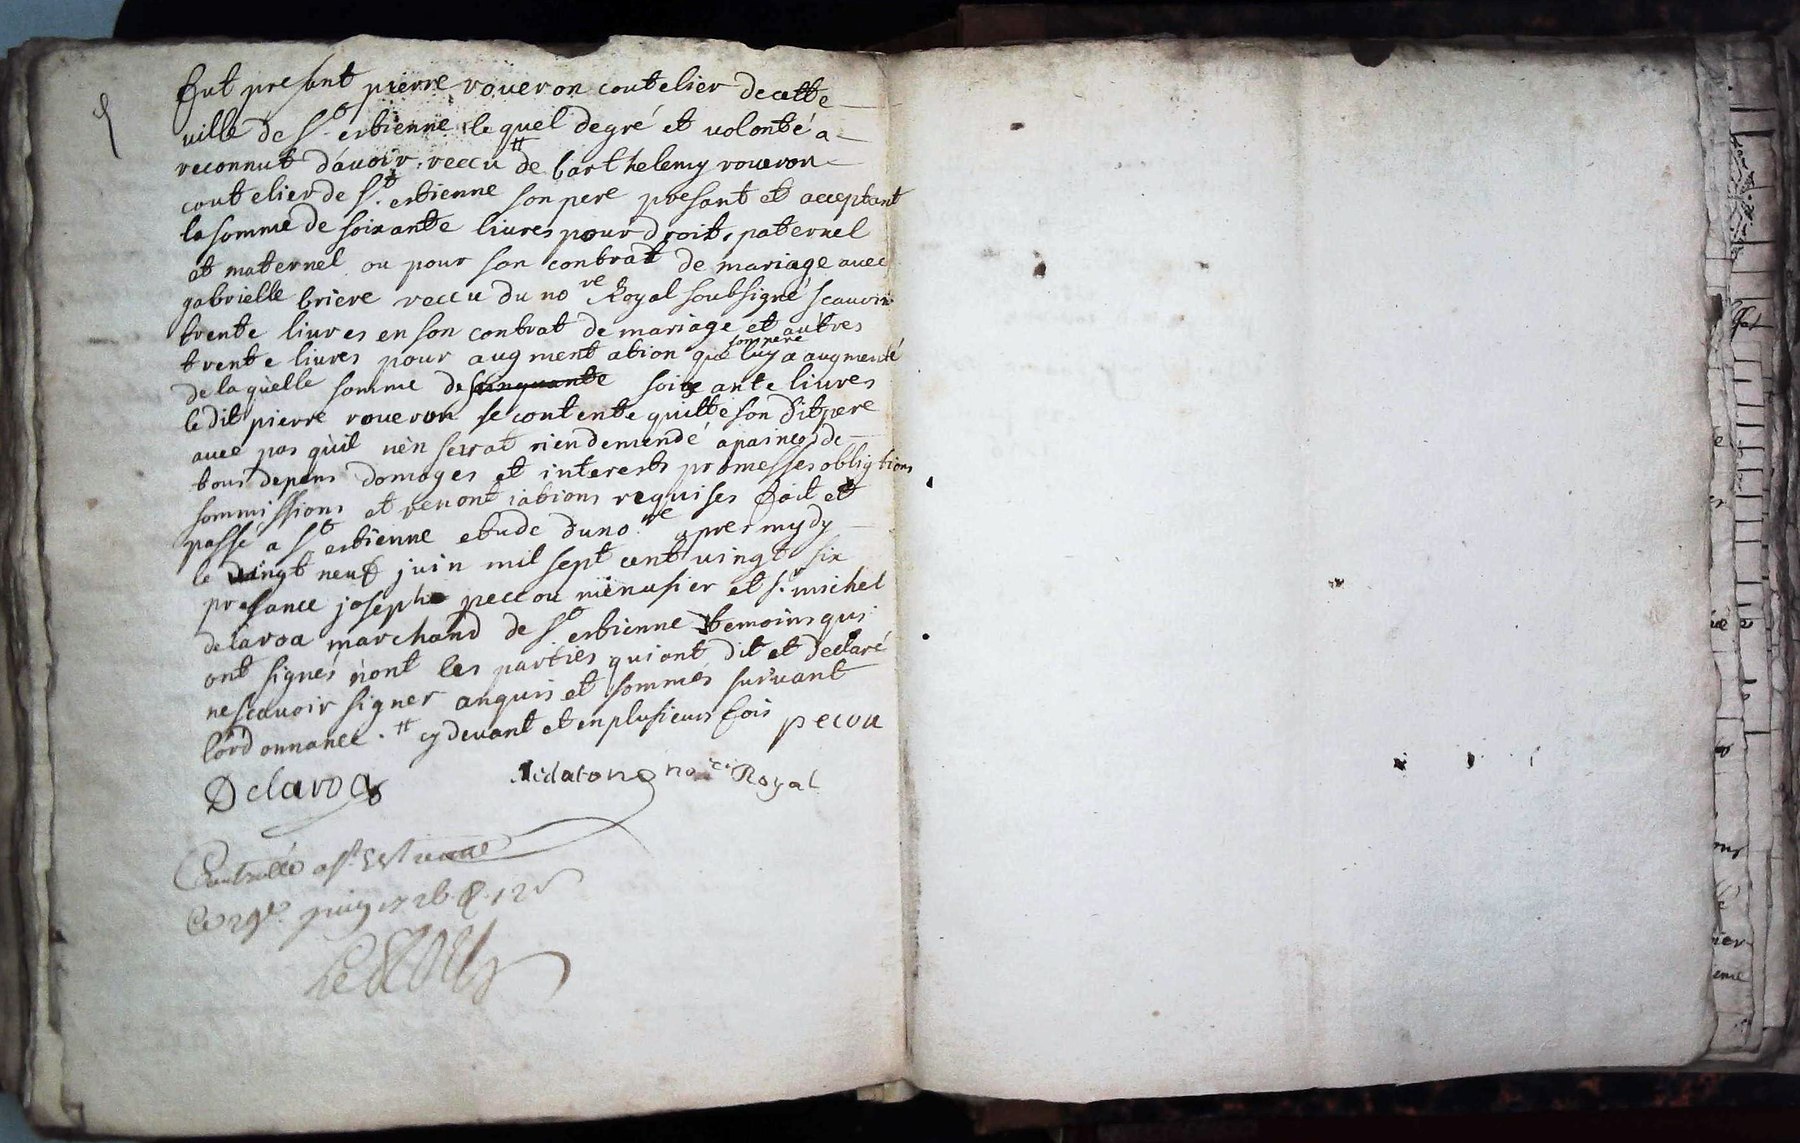 fut presant pierre roueron coutelier decette
ville de St. estienne lequel degré et volonté a
reconnut d'avoir reccu # de barthelemy roueron
coutelier de St. estienne son pere presant et acceptant
la somme de soixante livres pour droits paternel
et maternel ou pour son contrat de mariage avec
gabrielle briere reccu du nore Royal soubsigné scauoir
trente livres en son contrat de mariage et autres
trente livres pour augmentation que son pere luy a augmenté
de laquelle somme de cinquante soixante livres
ledit pierre roueron se contente quitte son dit pere
avec pas qu'il n'en serat rien demendé a paines de
tous depens domages et interests promesses obligtions
sommissions et renontiations requises fait et
passé a St estienne etude du nore apres mydy
le vingt neuf juin mil sept cent vingt six
presance joseph peccou menusier et sr. michel
delaroa marchand de St estienne temoins qui
ont signés nont les parties qui ont dit et declaré
ne scavoir signer anquis et sommés suivant
lordonnance. # cy devant et en plusieurs fois
pecou
Delaroa
no re Royal
Controllé a St Estienne
Ce 29e. juin 1726 R. 12 s